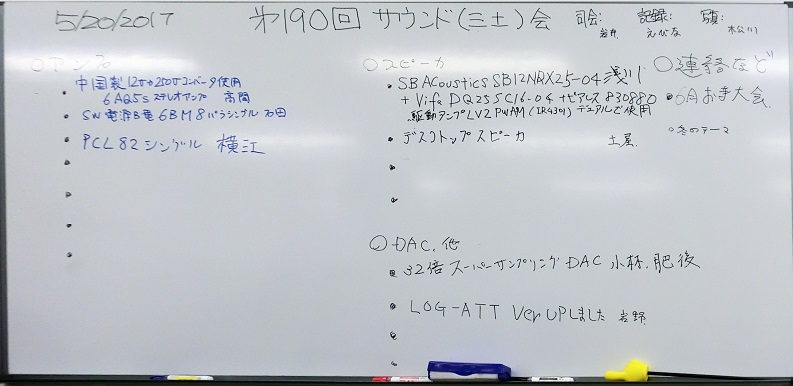 5/20/2017 第190回 サウンド(三土)会 司会: 岩井 記録: えびな 写真:
○アンプ
・中国製12V→250Vコンバータ使用
6AQ5s ステレオアンプ 高間
・SW電源B電 6BM8パラシングル 石田
・PCL82シングル 横江
○スピーカ
・SB Acoustics SB12NRX25-04 浅川
+ Vifa DQ25SC16-04 +ピアレス 830880
駆動アンプLV2 PWAM(IR4301)デュアルで使用
・デスクトップスピーカ 土屋
○DAC,他
・32倍スーパーサンプリングDAC 小林,肥後
・LOG-ATT Ver UPしました 岩野
○連絡など
・6Aお寺大会
○冬のテーマ